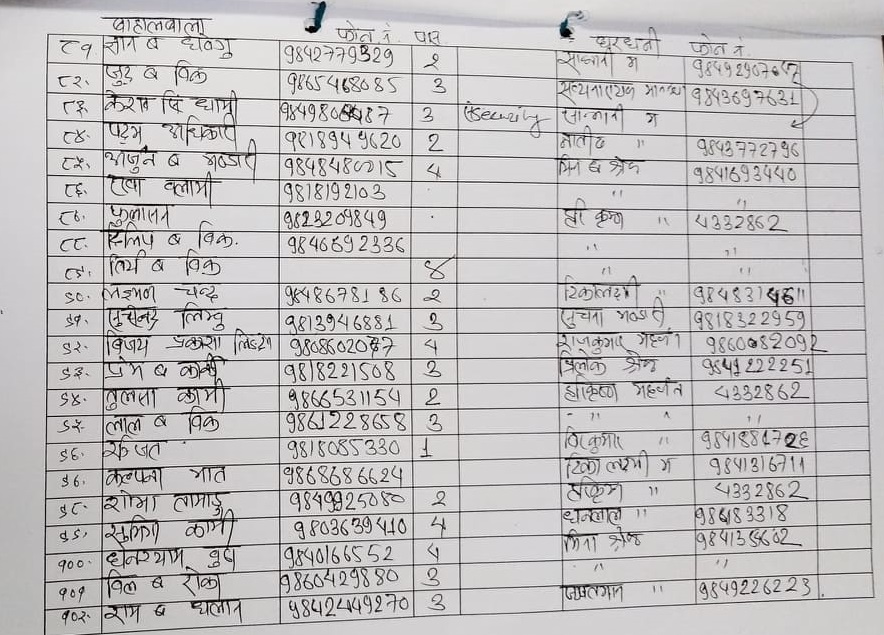 बाहालवाला फोन नं. पास घरधनी फोन नं.
८१ ज्ञान ब 9842779329 2 सानानी म 9849290
८२. जुद्द ब विक 9865468085 3 सत्यनारायण मानन्धर 9843697631
८३. केशव सिं धामी 3 Security सानानी म
८४. पदम अधिकारी 9818949620 2 9843772796
८५. अर्जुन ब भण्डारी 4 मिन ब श्रेष्ठ 9841693440
८६. रखा वलामी 9818192103 " "
८७. फुलासन 9823209849 . हरी कृष्ण " 4332862
८८. दिलिप ब विक. 9846592336 " "
८९. तिर्थ ब विक ४ " "
९०. लक्ष्मण चन्द 9848678186 2 " 98483
९१. लिम्बु 9813946881 3 सुचना भण्डारी 9818322959
९२. विजय प्रकाश 4 राजकुमार महर्जन 9860082092
९३. प्रेम ब कार्की 9818221508 3 त्रिलोक श्रेष्ठ 9841222251
९४. तुलसा कामी 9866531154 2 हरीकृष्ण महर्जन 4332862
९५. लाल ब विक 9861228658 3 " " "
९६. 9818085330 1 विरकुमार " 98418817
९७. कल्पना 9868686624 टिका लक्ष्मी म 9841316711
९८. शोभा तामाङ 9849925080 2 हरीकृष्ण " 4332862
९९. सुमित्रा कामी 9803639410 4 धनलाल " 98483318
१००. घनश्याम बुढा 9840166552 4 मिना श्रेष्ठ
१०१ विल ब रोका 9860429880 3 " "
१०२. राम ब घलान 9842449270 3 " 9849226223